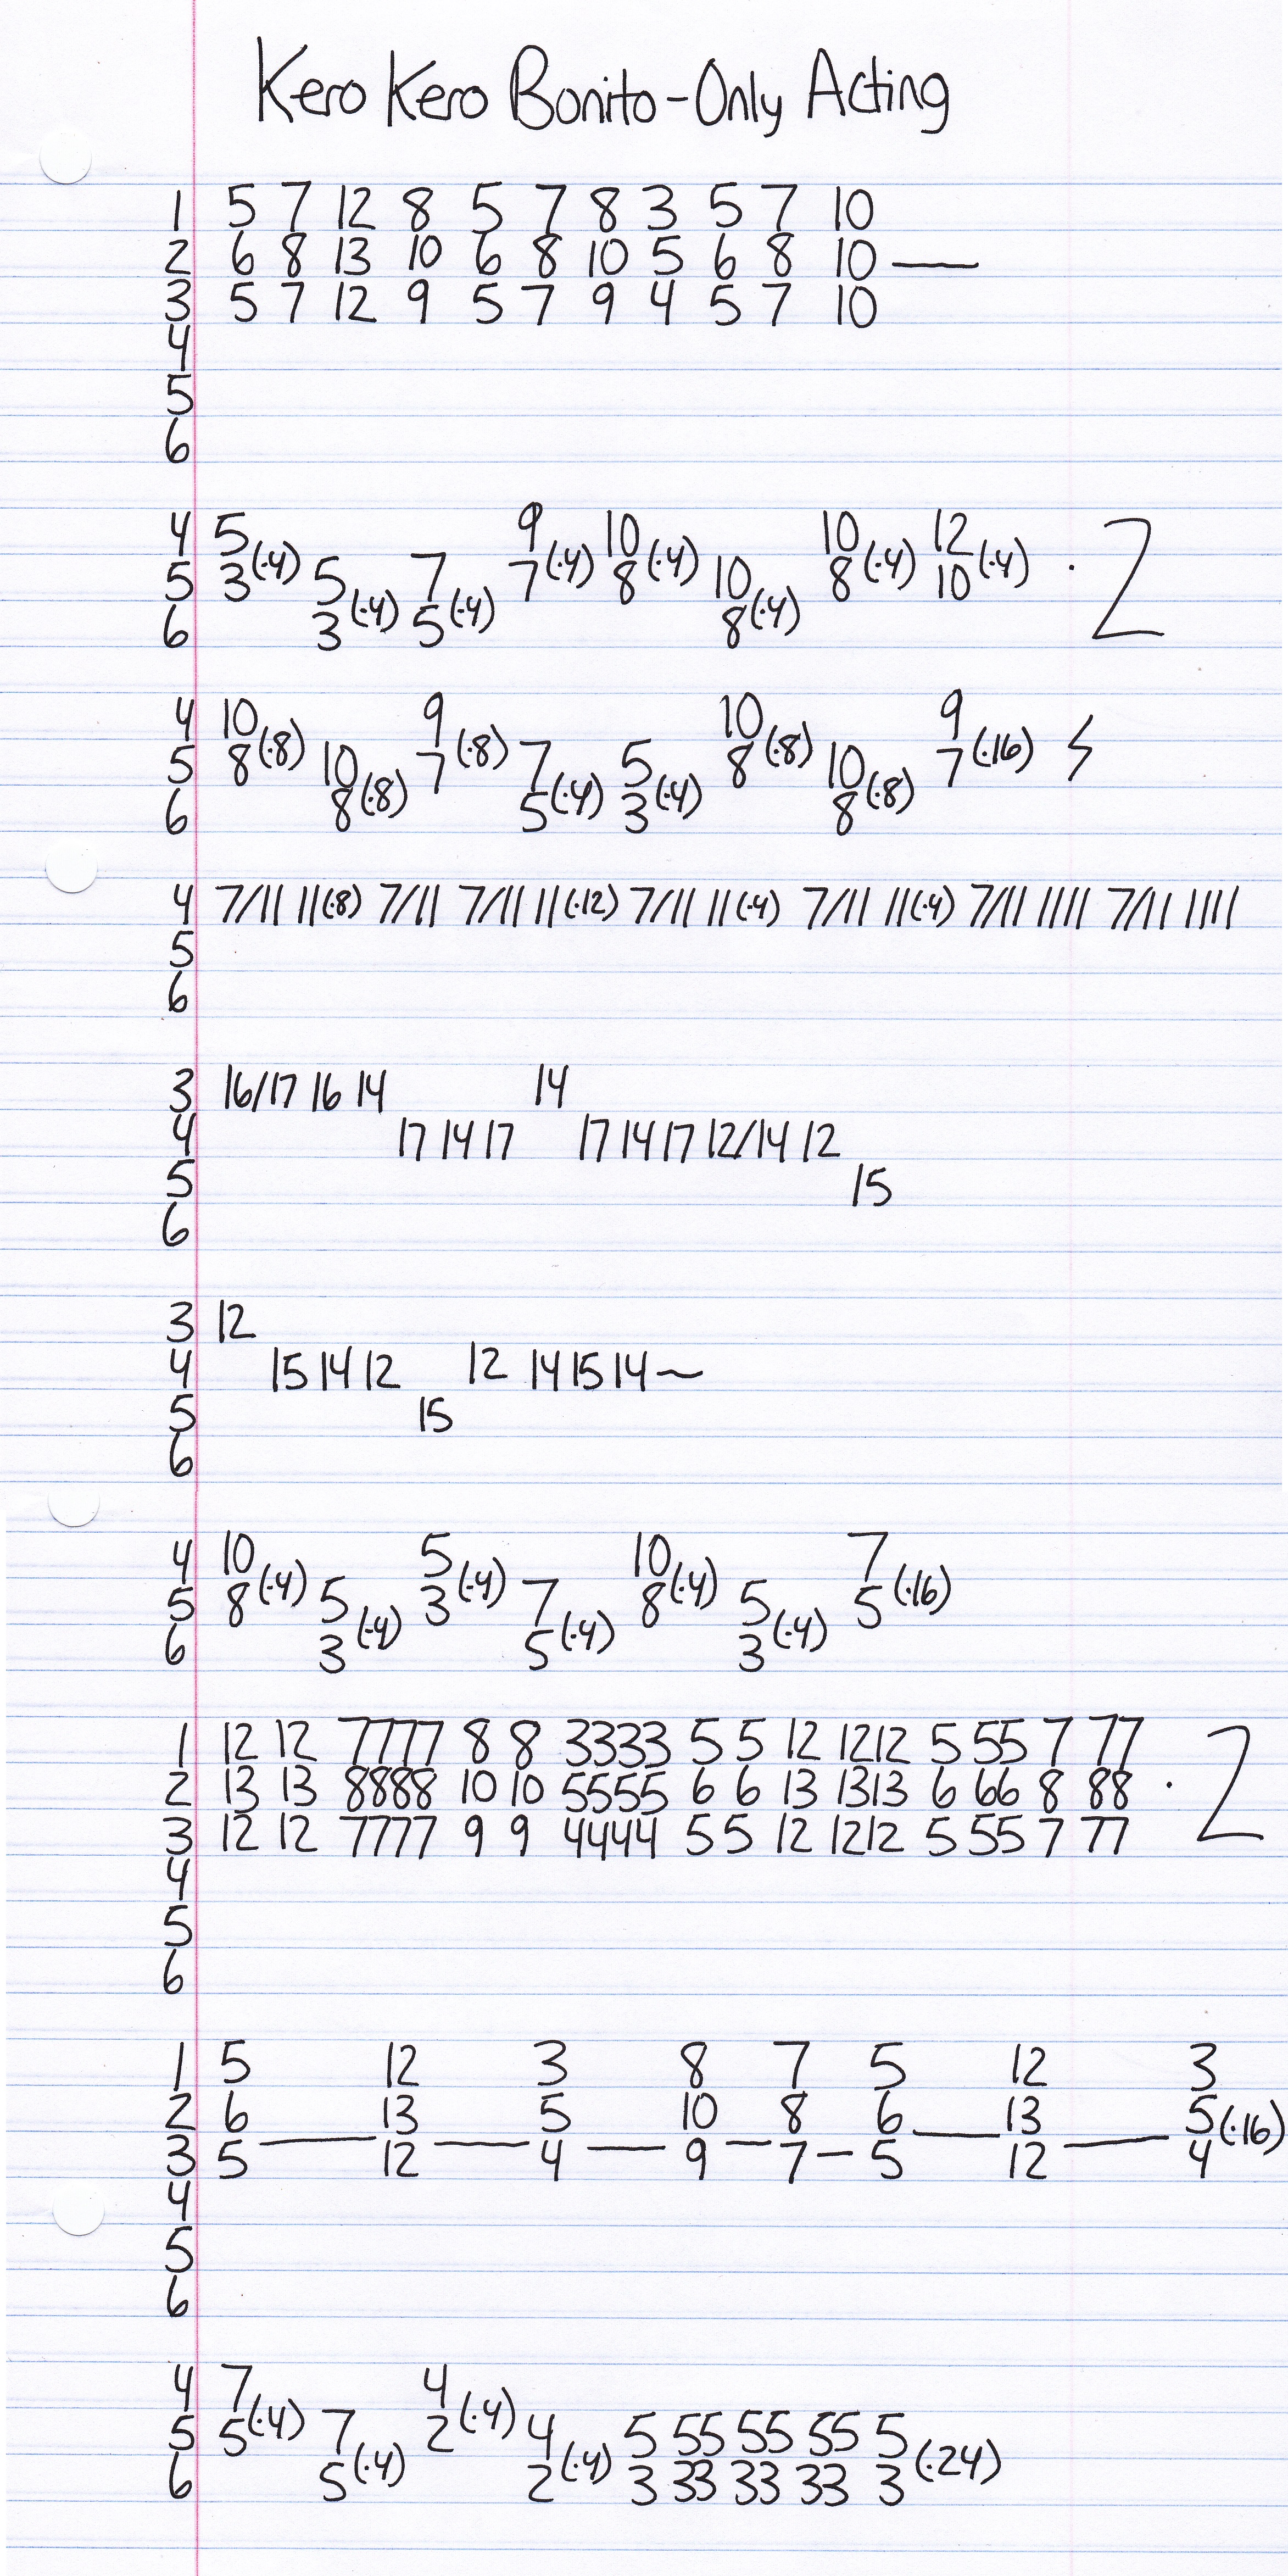 Kero Kero Bonito-Only Acting
1 5 7 12 8 5 7 8 3 5 7 10
2 6 8 13 10 6 8 10 5 6 8 10 —
3 5 7 12 9 5 7 9 4 5 7 10
4
5
6
4 5 9 10 10 12
5 3(·4) 5 7 7(·4) 8(·4) 10 8(·4) 10(·4) · 2
6 3(·4) 5(·4) 8(·4)
4 10 9 10 9
5 8(·8) 10 7(·8) 7 5 8(·8) 10 7(·16) ϟ
6 8(·8) 5(·4) 3(·4) 8(·8)
4 7/11 11(·8) 7/11 7/11 11(·12) 7/11 11(·4) 7/11 11(·4) 7/11 1111 7/11 1111
5
6
3 16/17 16 14 14
4 17 14 17 17 14 17 12/14 12
5 15
6
3 12
4 15 14 12 12 14 15 14~
5 15
6
4 10 5 10 7
5 8(·4) 5 3(·4) 7 8(·4) 5 5(·16)
6 3(·4) 5(·4) 3(·4)
1 12 12 7777 8 8 3333 5 5 12 1212 5 55 7 77
2 13 13 8888 10 10 5555 6 6 13 1313 6 66 8 88 · 2
3 12 12 7777 9 9 4444 5 5 12 1212 5 55 7 77
4
5
6
1 5 12 3 8 7 5 12 3
2 6 13 5 10 8 6 13 5(·16)
3 5 — 12 — 4 — 9 — 7 — 5 — 12 — 4
4
5
6
4 7 4
5 5(·4) 7 2(·4) 4 5 55 55 55 5
6 5(·4) 2(·4) 3 33 33 33 3(·24)